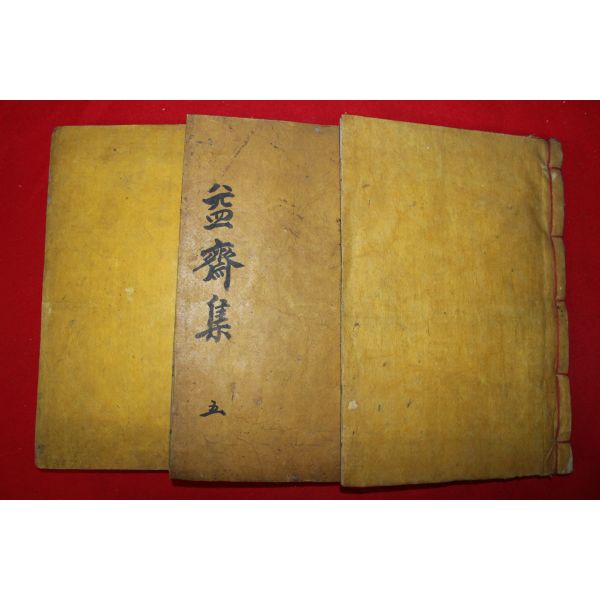 益齋集
五